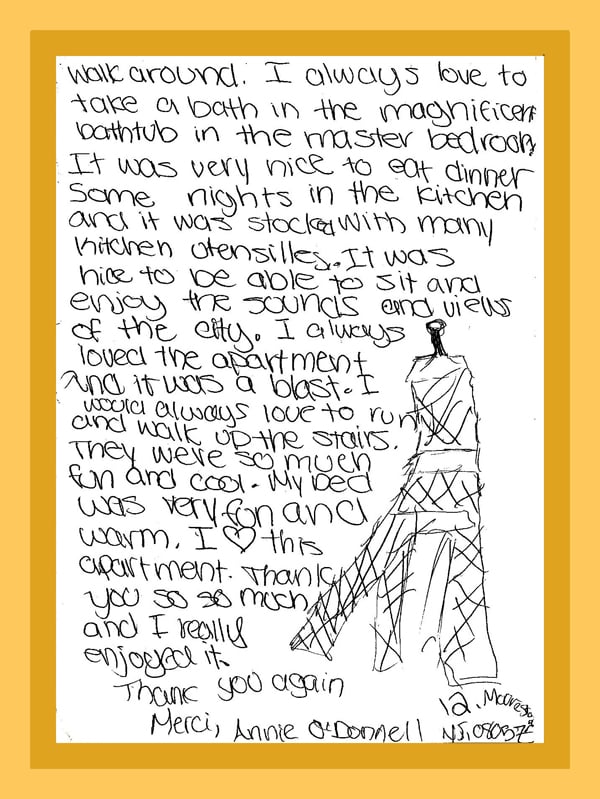 walk around. I always love to
take a bath in the magnificent
bathtub in the master bedroom
It was very nice to eat dinner
Some nights in the kitchen
and it was stocked with many
kitchen utensilles. It was
nice to be able to sit and
enjoy the sounds and views
of the city. I always
loved the apartment
And it was a blast. I
would always love to run
and walk up the stairs.
They were so much
fun and cool. My bed
was very fun and
warm. I ♡ this
apartment. Thank
you so so much
and I really
enjoyed it.
Thank you again
Merci, Annie O'Donnell
12,
NJ, 08057